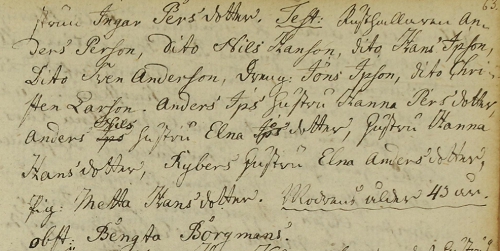 63.
strun Ingar Persdotter. Test: Rusthållaren An-
ders Person, dito Nils Hanson, dito Hans Ipson,
Dito Sven Anderson, Dräng: Jöns Ipson, dito Chri-
sten Larson. Anders Ips hustru Hanna Persdotter,
Anders Nils hustru Elna dotter, hustru Hanna
Hansdotter, Rybers hustru Elna Andersdotter,
Pig: Metta Hansdotter. Modrens ålder 43 år.
obst: Bengta Börgmans.